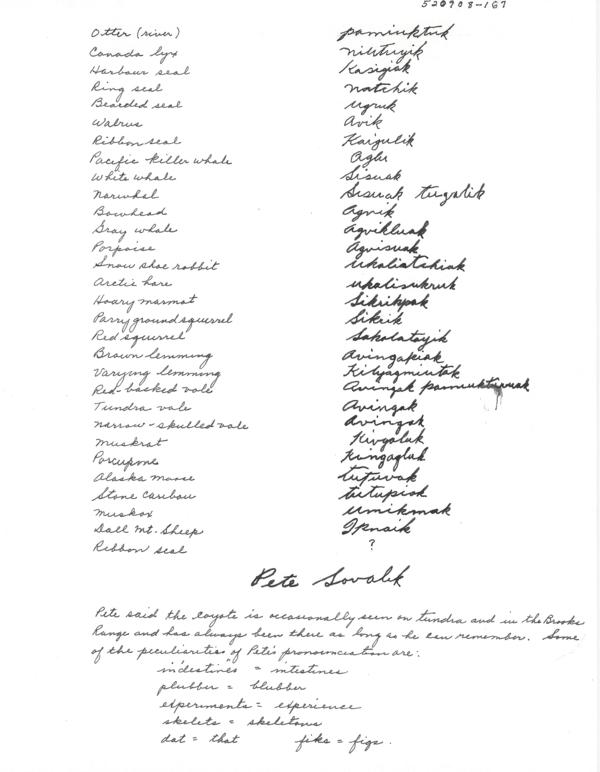 520908-167
Otter (river) pamiuktuk
Canada lyx niutuyik
Harbour seal Kasigiak
Ring seal natchik
Bearded seal ugruk
Walrus Avik
Ribbon seal Kaigulik
Pacific killer whale Aglu
White whale Sisuak
Narwhal Sisuak tugalik
Bowhead Agvik
Gray whale Agvikluak
Porpoise Agvisuak
Snow shoe rabbit ukaliatchiak
Arctic hare ukalisukruk
Hoary marmot Sikrikpak
Parry ground squirrel Sikrik
Red squirrel Sakolatayik
Brown lemming Avingapiak
Varying lemming Kilyagmiutak
Red-backed vole Avingak pamiuktuuak
Tundra vole Avingak
Narrow-skulled vole Avingak
Muskrat Kivgaluk
Porcupone Kingagluk
Alaska moose tutuvak
Stone Caribou tutupiak
Muskox umikmak
Dall Mt. Sheep Ipnaik
Ribbon seal ?
Pete Sovalik
Pete said the coyote is occasionally seen on tundra and in the Brooks
Range and has always been there as long as he can remember. Some
of the peculiarities of Pete's pronounciation are:
indestines = intestines
plubber = blubber
experiments = experience
skelets = skeletons
dat = that fiks = figs.